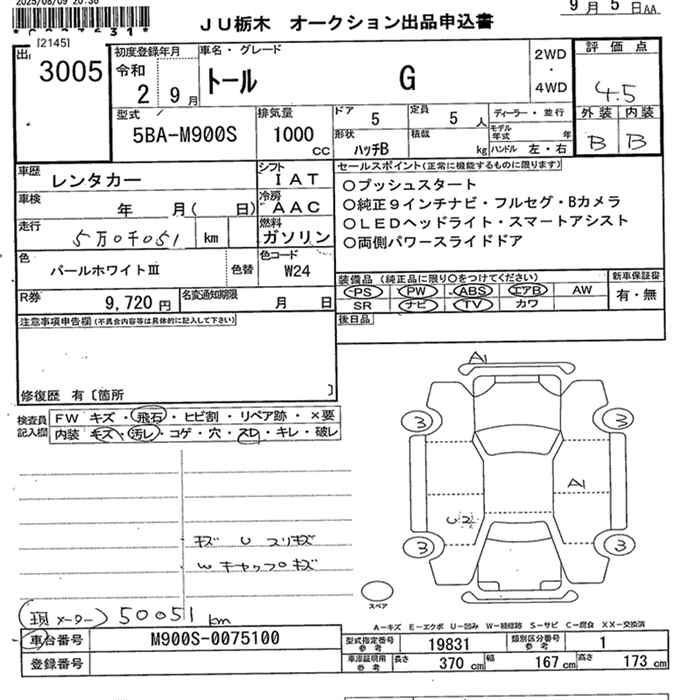 2025/08/09 20:36
9月 5日AA
JU栃木 オークション出品申込書
[2145]
出
3005
初度登録年月
令和
2 9月
車名・グレード
トール G
2WD
・
4WD
評価点
4.5
外装 内装
B B
型式
5BA-M900S
排気量
1000 cc
ドア 5
定員 5 人
形状 ハッチB
積載 kg
ディーラー・並行
モデル年式 年
ハンドル 左・右
車歴
レンタカー
シフト
I AT
車検
年 月( 日)
冷房
AAC
走行
5万0千051 km
燃料
ガソリン
色
パールホワイトⅢ
色替
色コード
W24
R券
9,720 円
名変通知期限
月 日
セールスポイント(正常に機能するものに限ります)
○プッシュスタート
○純正9インチナビ・フルセグ・Bカメラ
○LEDヘッドライト・スマートアシスト
○両側パワースライドドア
装備品(純正品に限り○をつけてください)
PS PW ABS エアB AW
SR ナビ TV カワ
新車保証書
有・無
後日品
注意事項申告欄(不具合内容等は具体的に記入して下さい)
修復歴 有〔箇所 〕
検査員記入欄
FW キズ・飛石・ヒビ割・リペア跡・×要
内装 キズ・汚レ・コゲ・穴・スレ・キレ・破レ
A1
3 3
A1
U2
3 3
スペア
キズ U スリキズ
Wキャップキズ
(現メーター) 50051 km
A-キズ E-エクボ U-凹み W-補修跡 S-サビ C-腐食 XX-交換済
車台番号
M900S-0075100
登録番号
型式指定番号 参考
19831
類別区分番号 参考
1
車庫証明用 参考
長さ 370 cm 幅 167 cm 高さ 173 cm